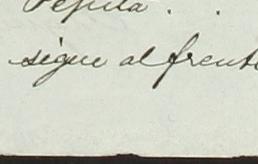 Pepita . .
sigue al frente